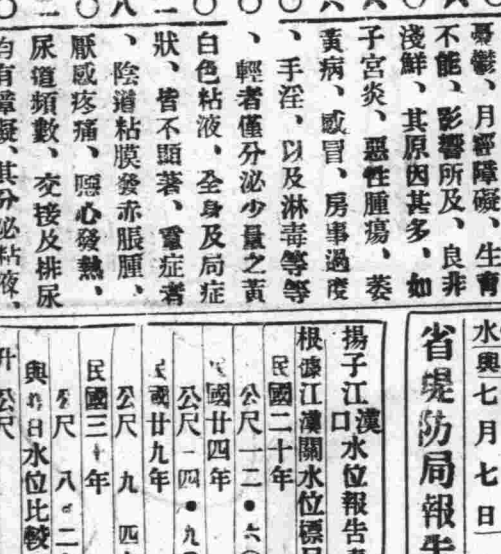 憂鬱、月經障礙、生育
不能、影響所及、良非
淺鮮、其原因甚多、如
子宮炎、惡性腫瘍、萎
黃病、感冒、房事過度
、手淫、以及淋毒等等
、輕者僅分泌少量之黃
白色粘液、全身及局症
狀、皆不顯著、重症者
、陰道粘膜發赤脹腫、
厭感疼痛、噁心發熱、
尿道頻數、交接及排尿
均有障礙、其分泌粘液、
水興七月七日
省堤防局報告
揚子江漢口水位報告
根據江漢關水位標
民國二十年
公尺一二●六
民國廿四年
公尺一四●九
民國廿九年
公尺 九 四
民國三十年
公尺 八●二
與昨日水位比較
升公尺